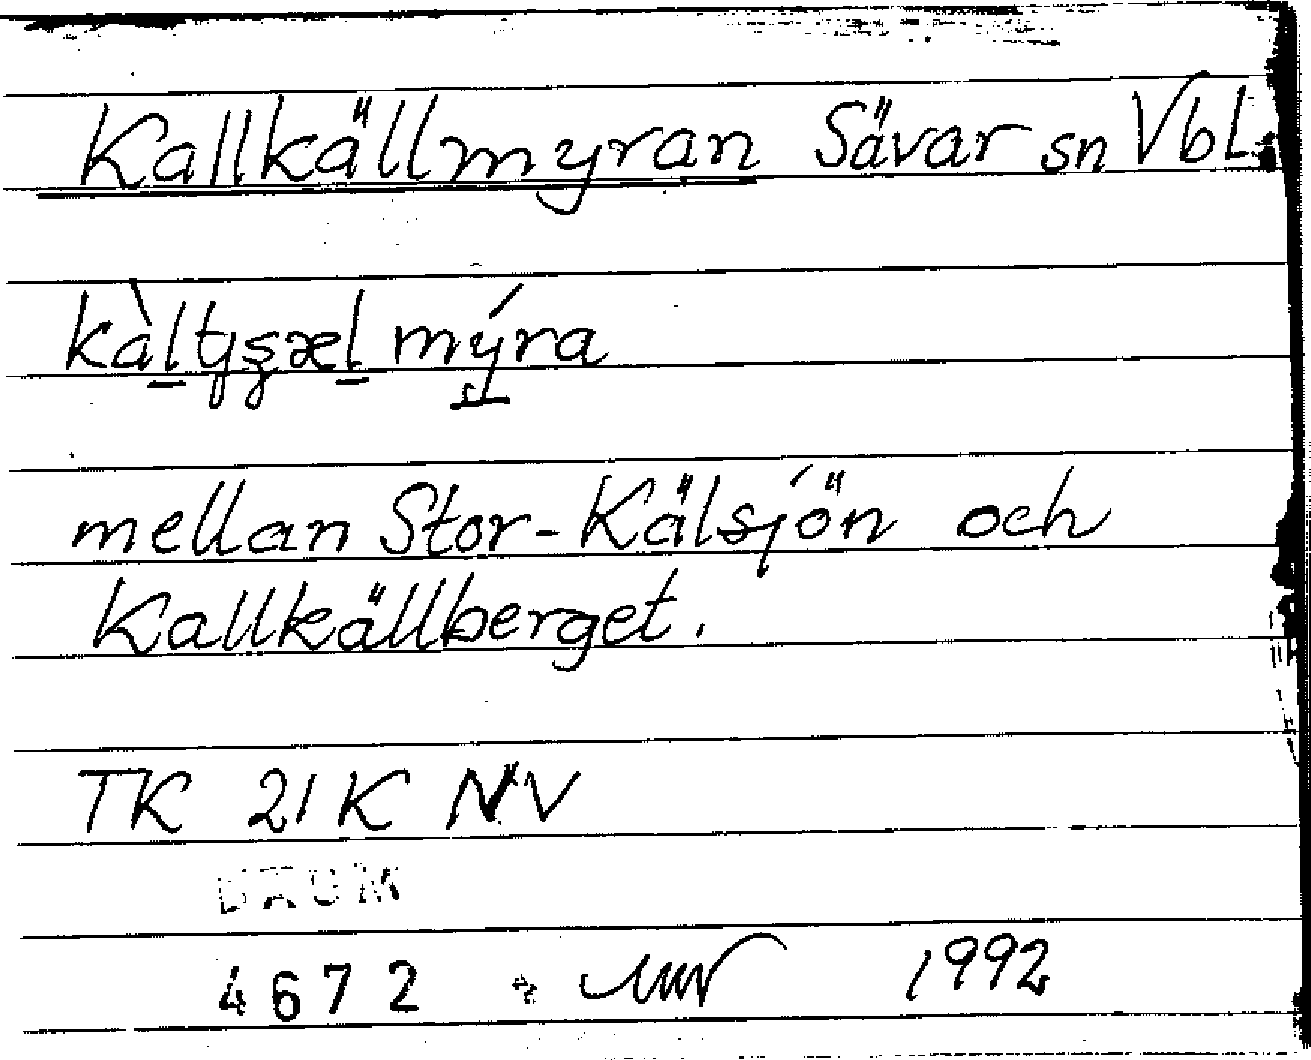 Kallkällmyran Sävar sn Vbl.
mellan Stor-Kälsjön och
Kallkällberget.
TK 21K NV
DAUM
4672 1992